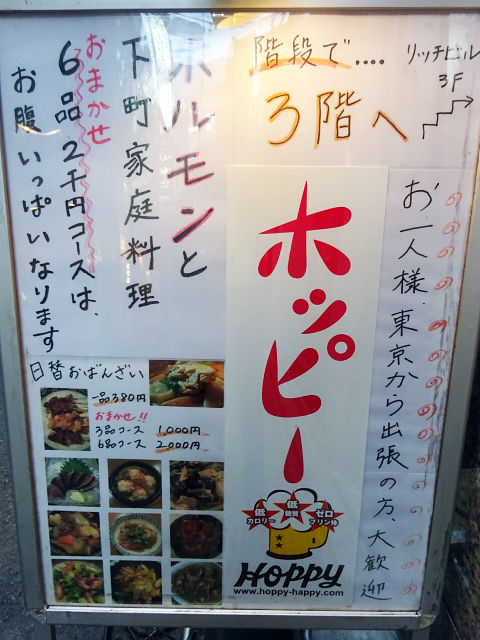 リッチビル
3F
階段で....
3階へ
お一人様、東京から出張の方、大歓迎
ホッピー
低
カロリー
低
糖質
ゼロ
プリン体
HOPPY
www.hoppy-happy.com
ホルモンと
下町家庭料理
おまかせ
6品2千円コースは、
お腹いっぱいなります
日替おばんざい
一品380円
おまかせ!!
3品コース 1,000円
6品コース 2,000円